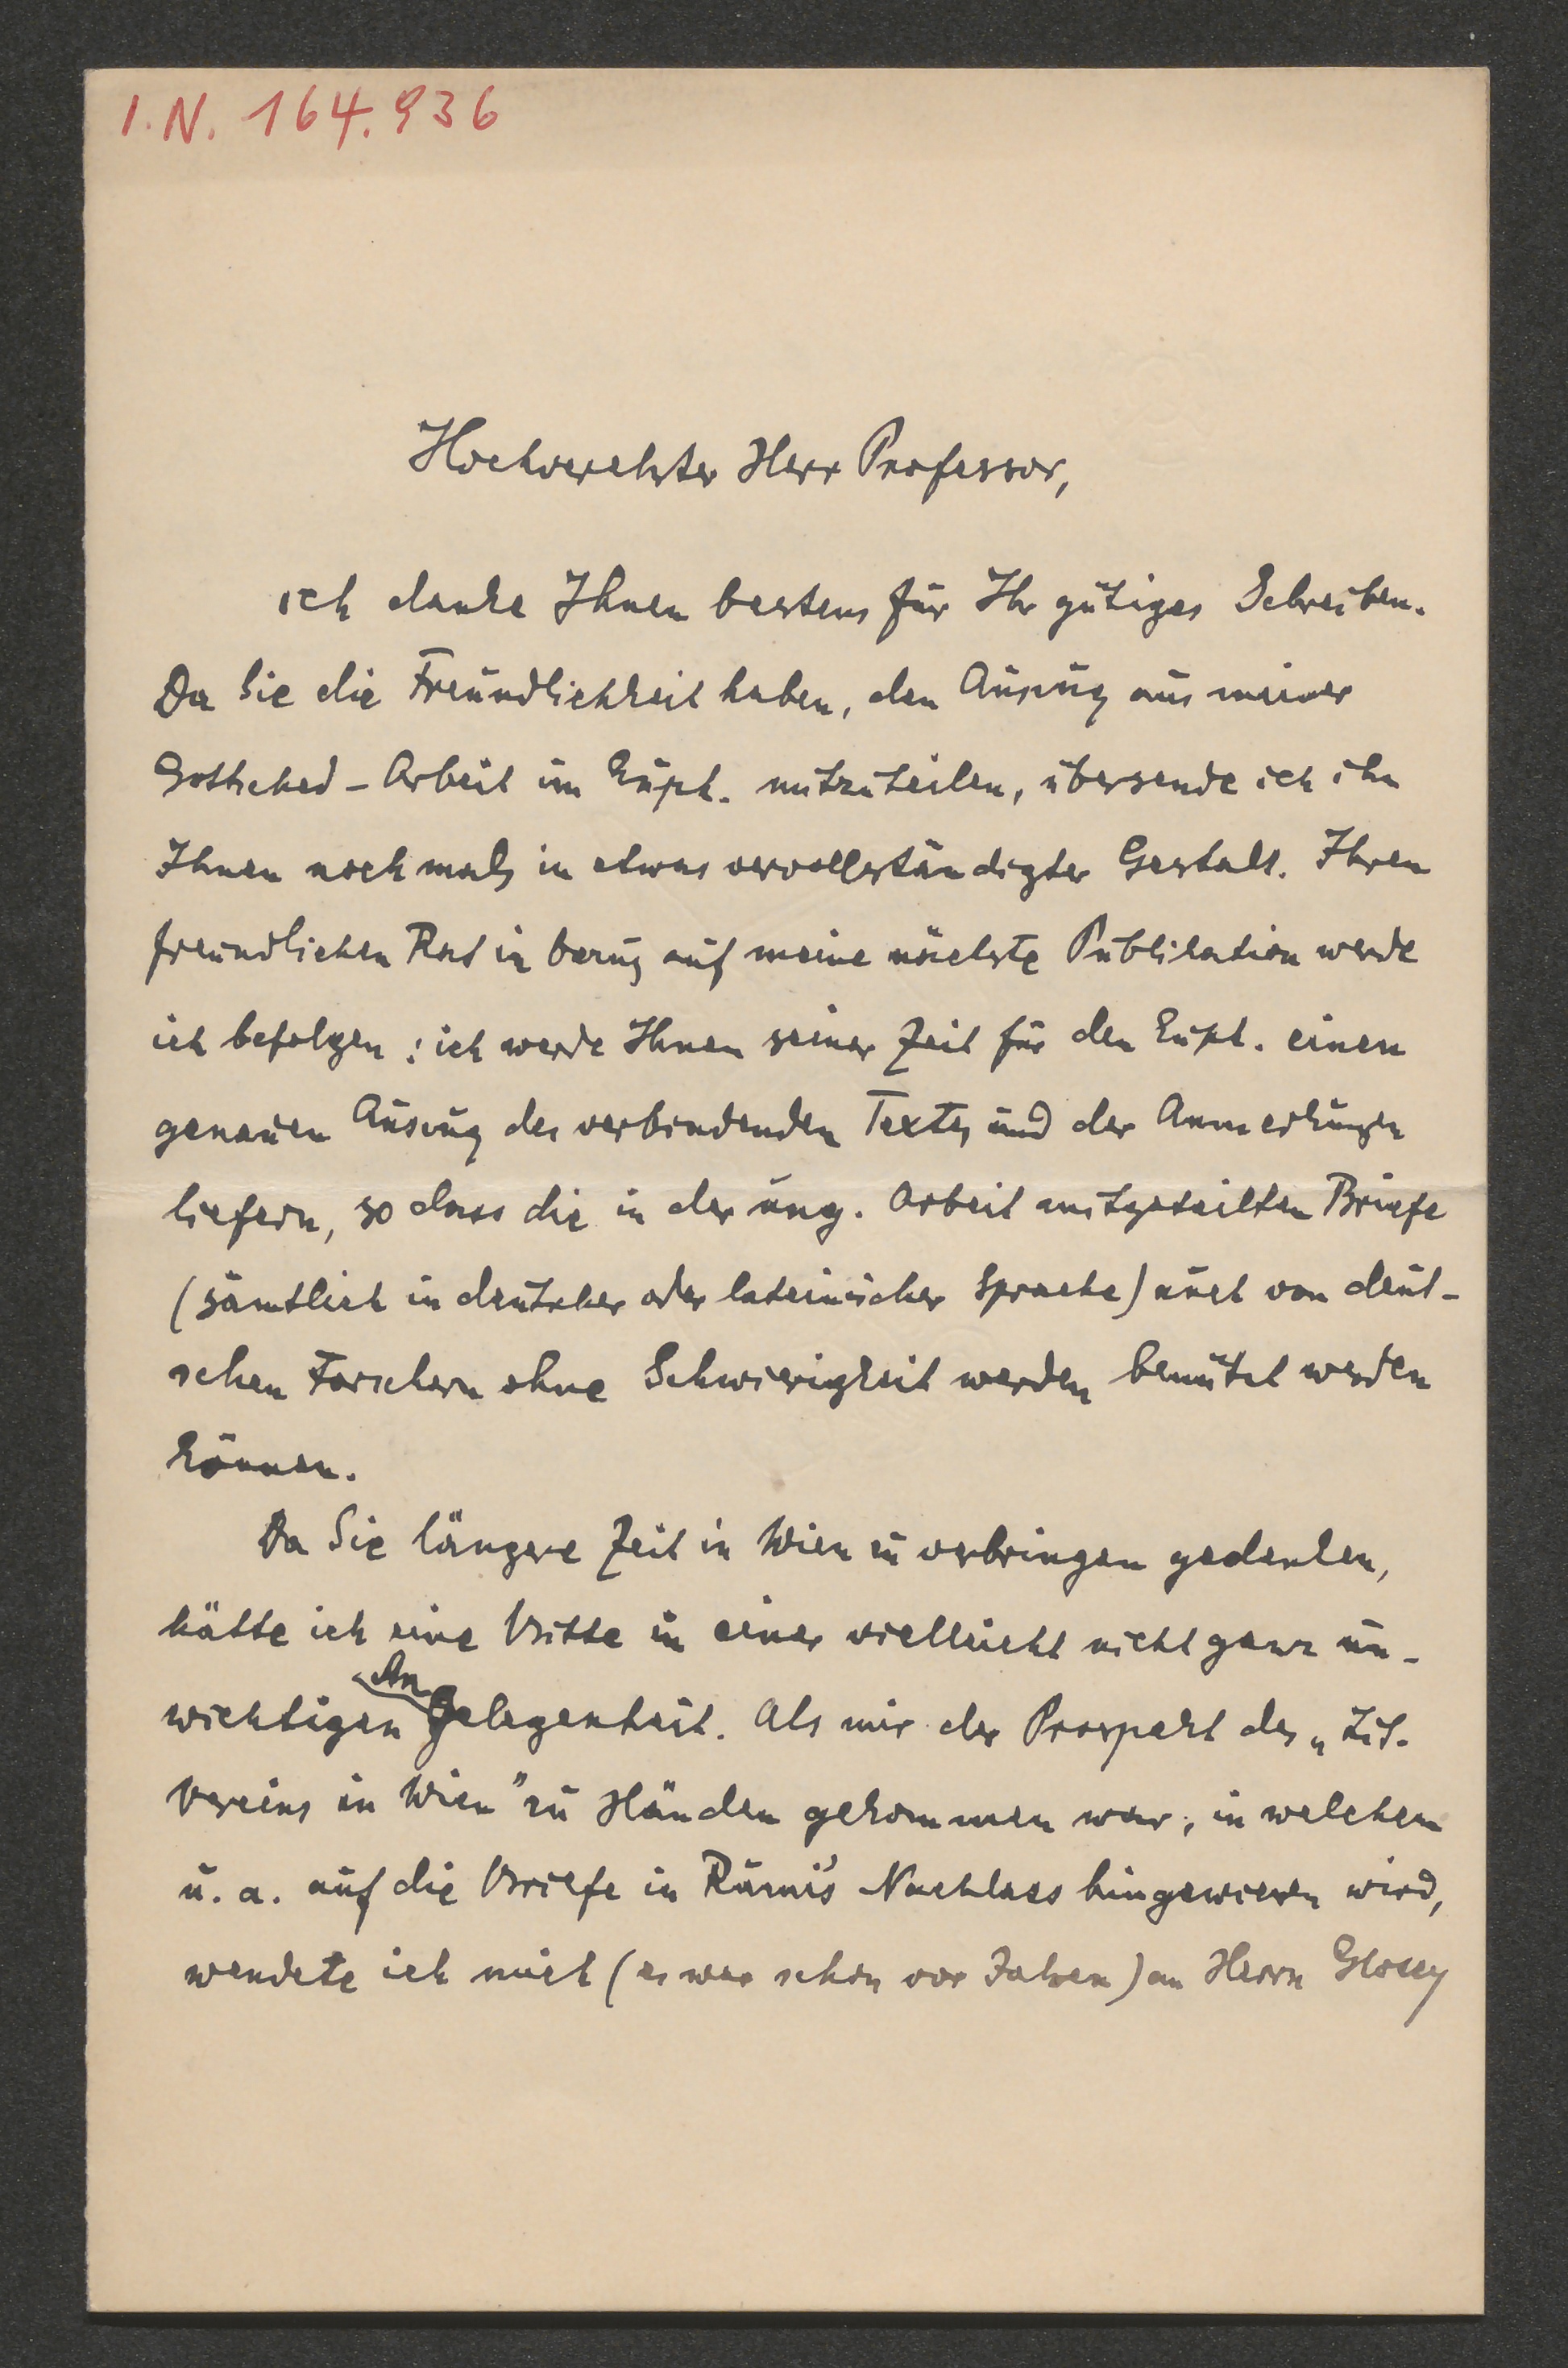 I. N. 164.936
Hochverehrter Herr Professor,
ich danke Ihnen bestens für Ihr gütiges Schreiben.
Da Sie die Freundlichkeit haben, den Auszug aus meiner
Gottsched-Arbeit im Euph. mitzuteilen, übersende ich ihn
Ihnen noch mals in etwas vervollständigter Gestalt. Ihren
freundlichen Rat in bezug auf meine nächste Publikation werde
ich befolgen: ich werde Ihnen seiner Zeit für den Euph. einen
genauen Auszug des verbindenden Textes und der Anmerkungen
liefern, so dass die in der ung. Arbeit mitgeteilten Briefe
(sämtlich in deutscher oder lateinischer Sprache) auch von deut-
schen Forschern ohne Schwierigkeit werden benützt werden
können.
Da Sie längere Zeit in Wien zu verbringen gedenken,
hätte ich eine Bitte in einer vielleicht nicht ganz un-
wichtigen Angelegenheit. Als mir der Prospekt des „Lit.
Vereins in Wien" zu Händen gekommen war, in welchem
u. a. auf die Briefe in Rumi's Nachlass hingewiesen wird,
wendete ich mich (es war schon vor Jahren) an Herrn Glossy